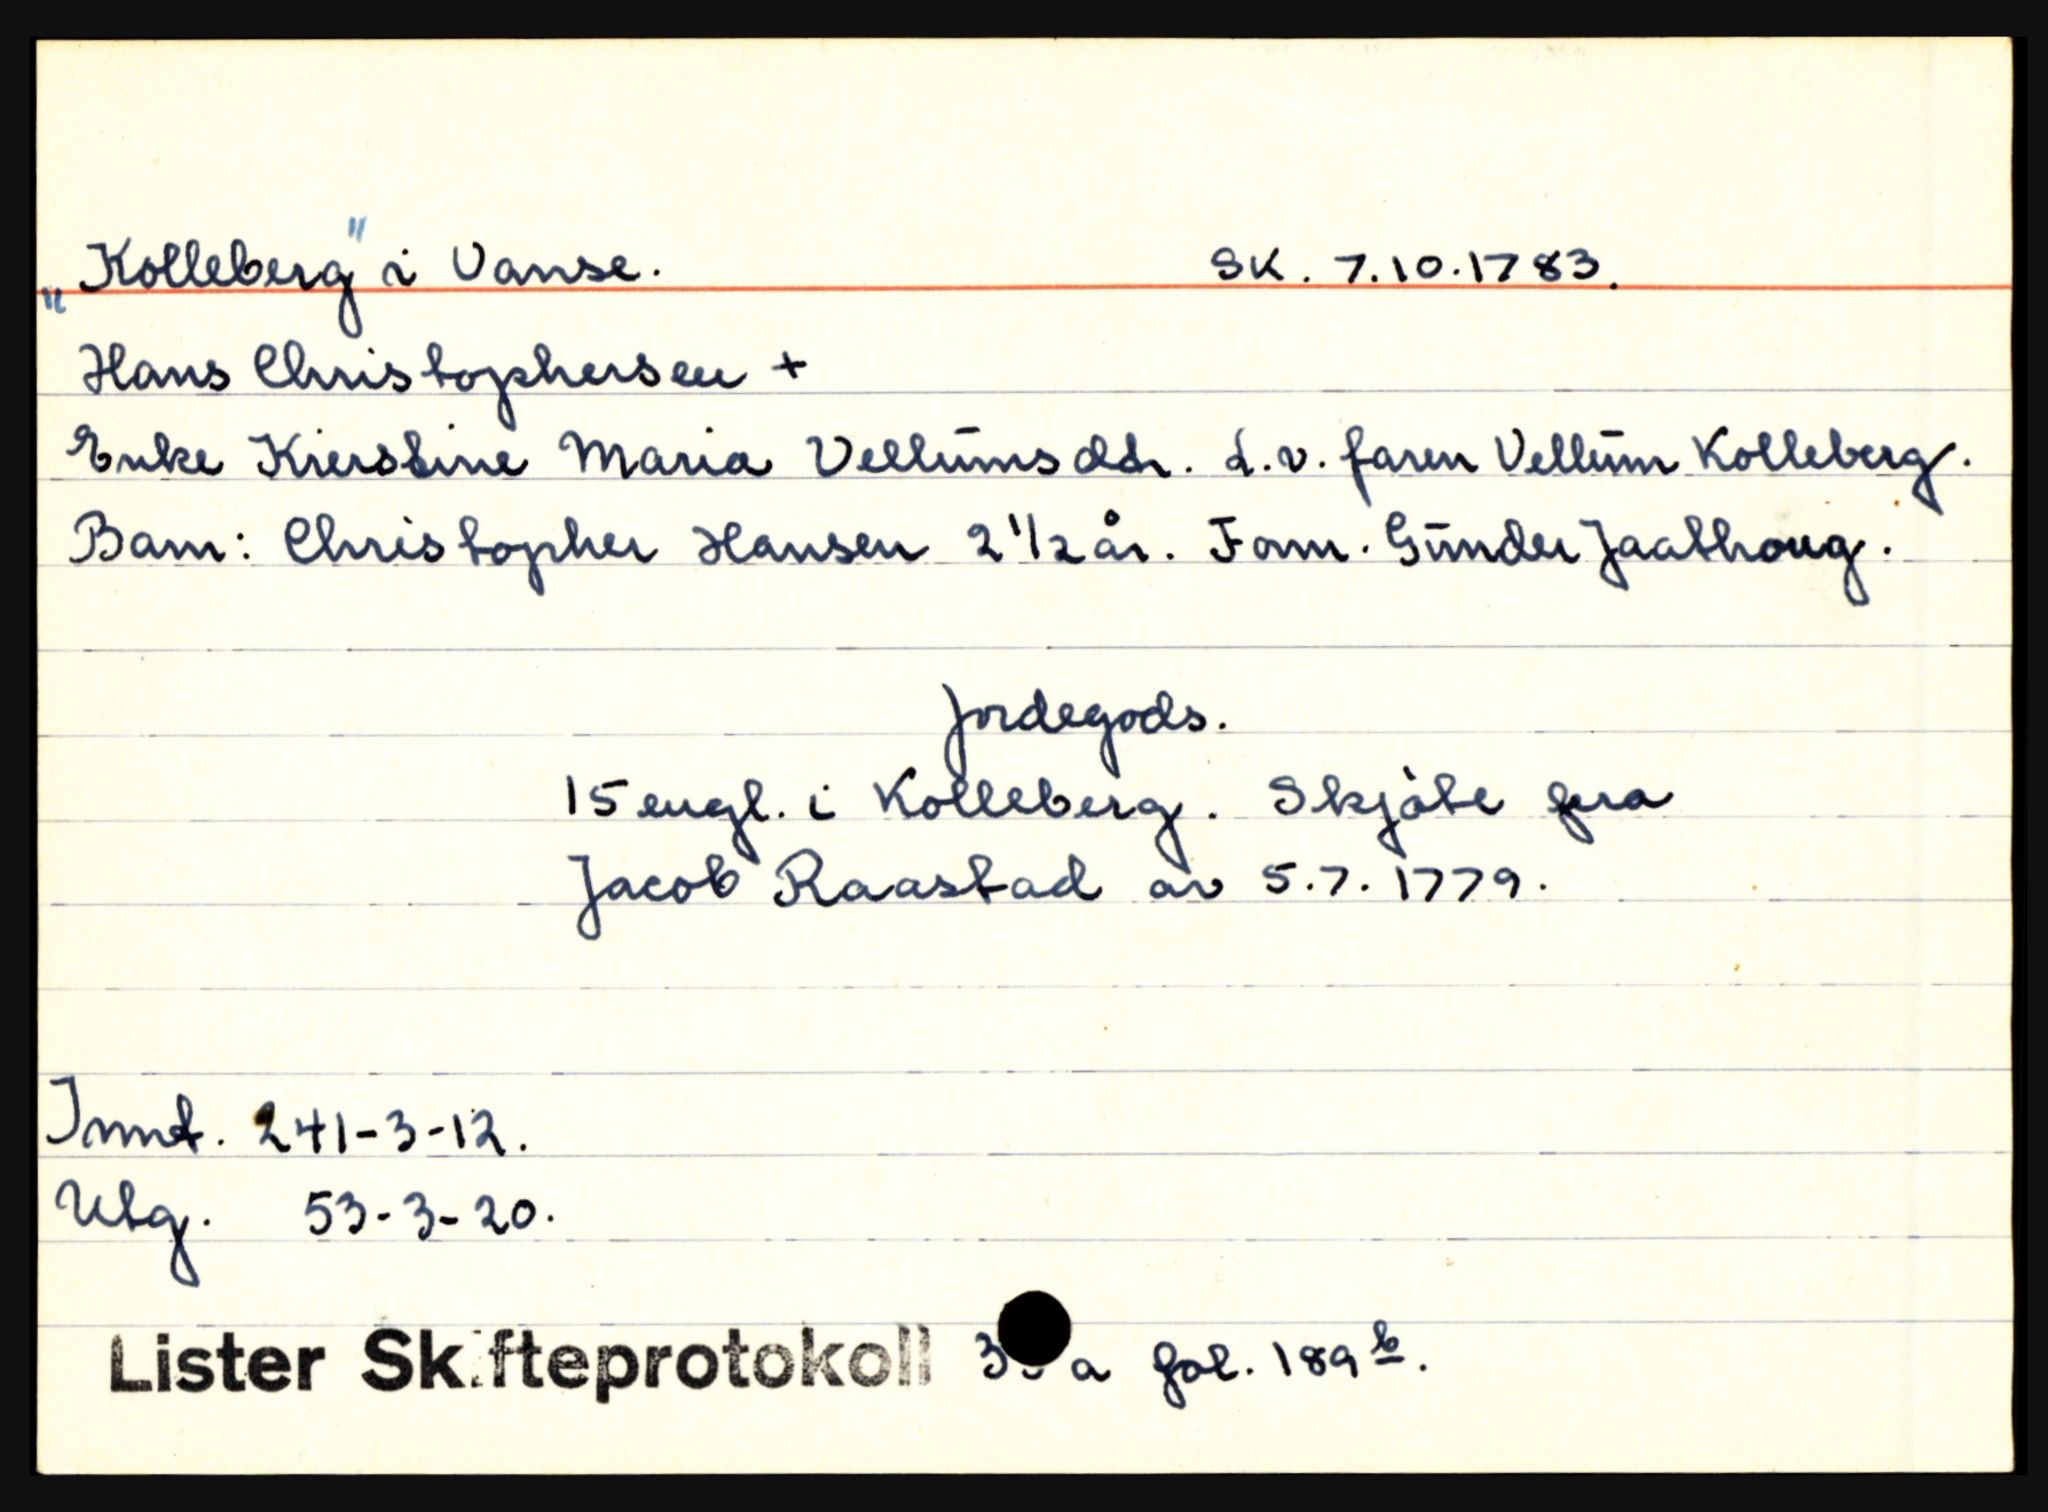 "Kolleberg" i Vanse. SK. 7.10.1783.
Hans Christophersen +
Enke Kierstine Maria Vellumsdtr. L.v. faren Vellum Kolleberg.
Barn: Christopher Hansen 2 1/2 år. Form. Gunder Jaathoug.
Jordegods.
15 engl. i Kolleberg. Skjøte fra
Jacob Raastad av 5.7.1779.
Innt. 241-3-12.
Utg. 53-3-20.
Lister Skifteprotokoll a fol. 189 b.